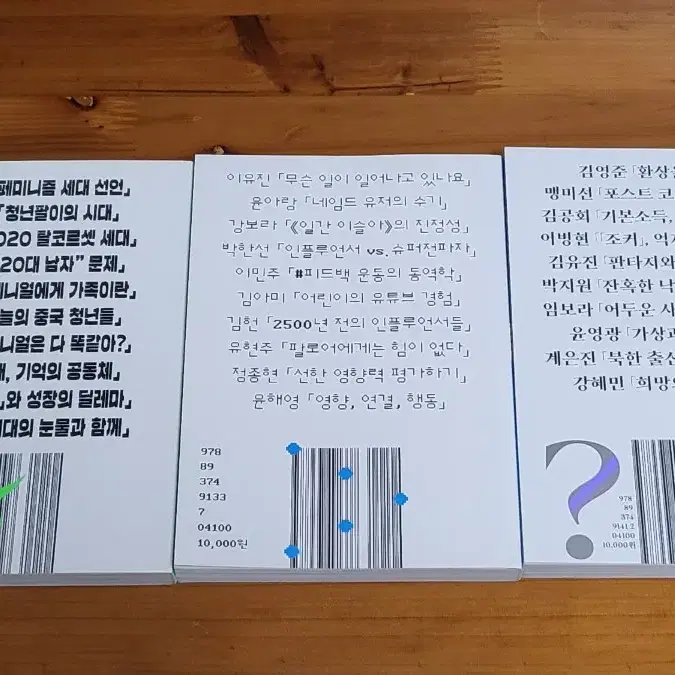 페미니즘 세대 선언」
「청년팔이의 시대」
020 탈코르셋 세대」
20대 남자” 문제」
니얼에게 가족이란」
늘의 중국 청년들」
니얼은 다 똑같아?」
기억의 공동체」
」와 성장의 딜레마」
대의 눈물과 함께」
이유진 「무슨 일이 일어나고 있나요」
윤아람 「네임드 유저의 수기」
강보라 「《일간 이슬아》의 진정성」
박한선 「인플루언서 vs. 슈퍼전파자」
이민주 「#피드백 운동의 동역학」
김아미 「어린이의 유튜브 경험」
김헌 「2500년 전의 인플루언서들」
유현주 「팔로어에게는 힘이 없다」
정종현 「선한 영향력 평가하기」
윤해영 「영향, 연결, 행동」
978
89
374
9133
7
04100
10,000원
김영준 「환상은
맹미선 「포스트 코
김공회 「기본소득,
이병현 「『조커』, 억지
김유진 「판타지와
박지원 「잔혹한 낙
임보라 「어두운 사
윤영광 「가상과
계은진 「북한 출신
강혜민 「희망의
978
89
374
9141 2
04100
10,000원